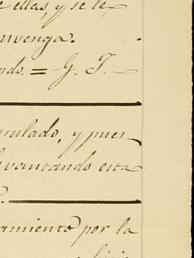 ellas, y se le
nvenga.
nds. = G. T. —
mulado, y pues
levantando esta
amiento por la